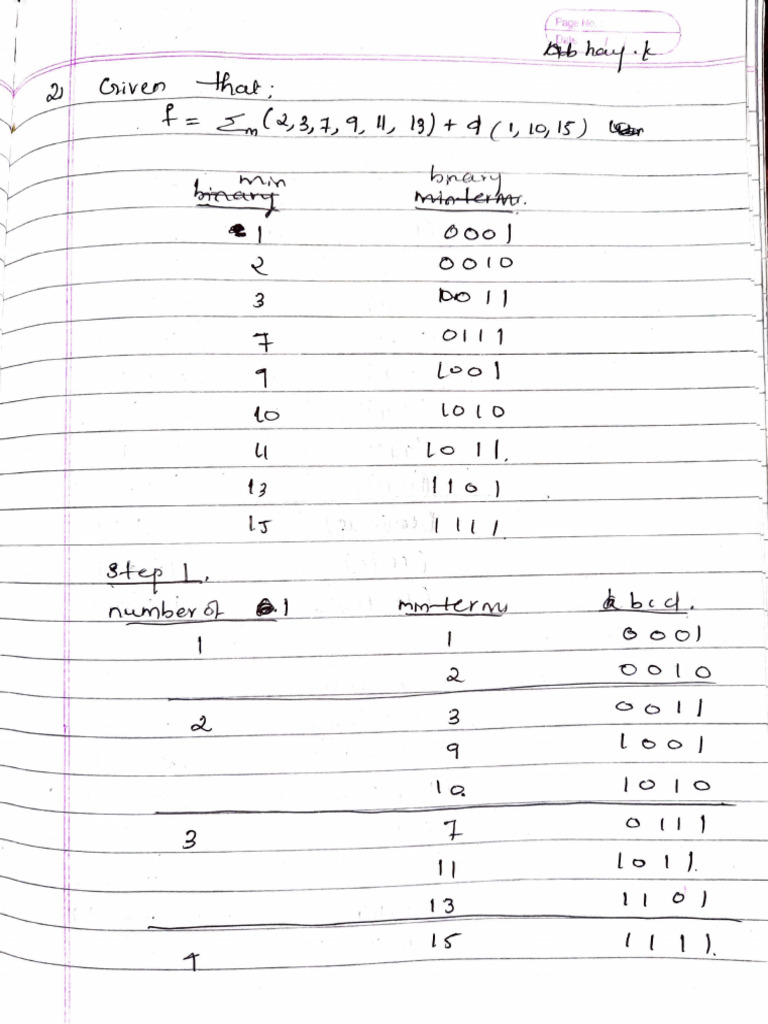 Page No.
Date
Abhay.k
2) Given that;
f = Σm (2,3,7,9,11,13) + d (1,10,15)
min bnary
binary minterm.
1 0001
2 0010
3 0011
7 0111
9 1001
10 1010
11 1011.
13 1101
15 1111.
Step 1.
number of 1 minterm abcd.
1 1 0001
2 0010
2 3 0011
9 1001
10. 1010
3 7 0111
11 1011.
13 1101
4 15 1111.